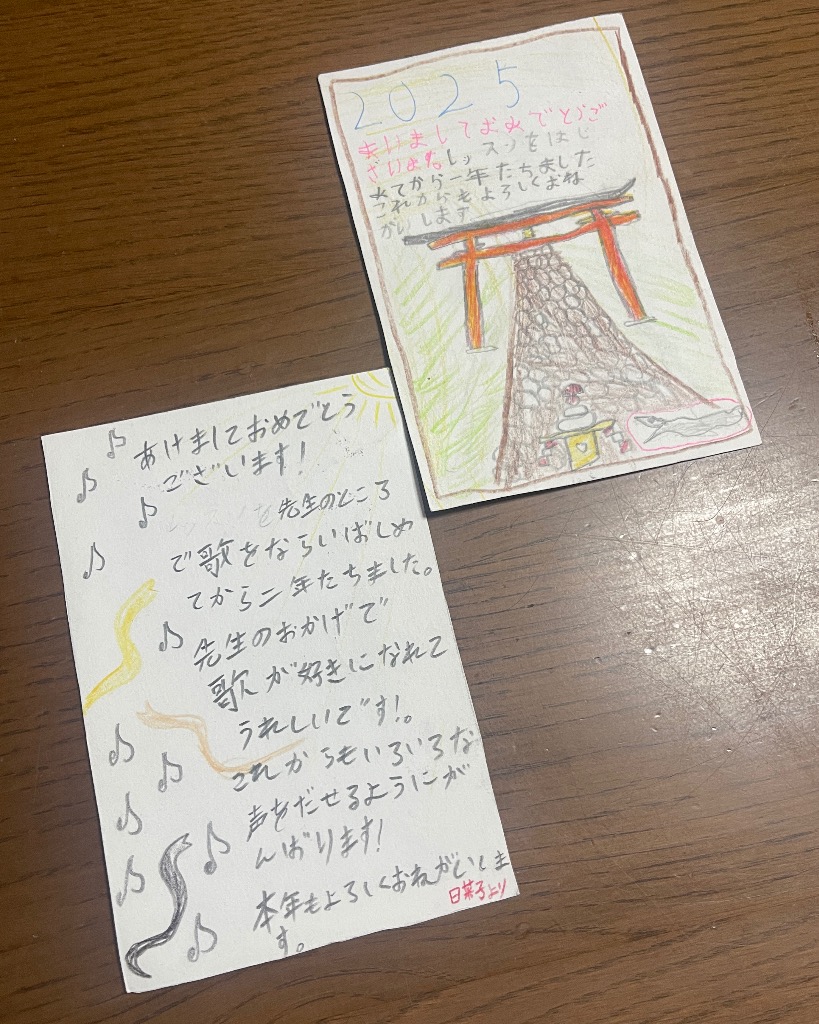 2025
あけましておめでとうご
ざいます。レッスンをはじ
めてから一年たちました
これからもよろしくおね
がいします
あけましておめでとう
ございます!
先生のところ
で歌をならいばしめ
てから二年たちました。
先生のおかげで
歌が好きになれて
うれしいです!。
これからもいろいろな
声をだせるようにが
んばります!
本年もよろしくおねがいしま
す。
日菜子より